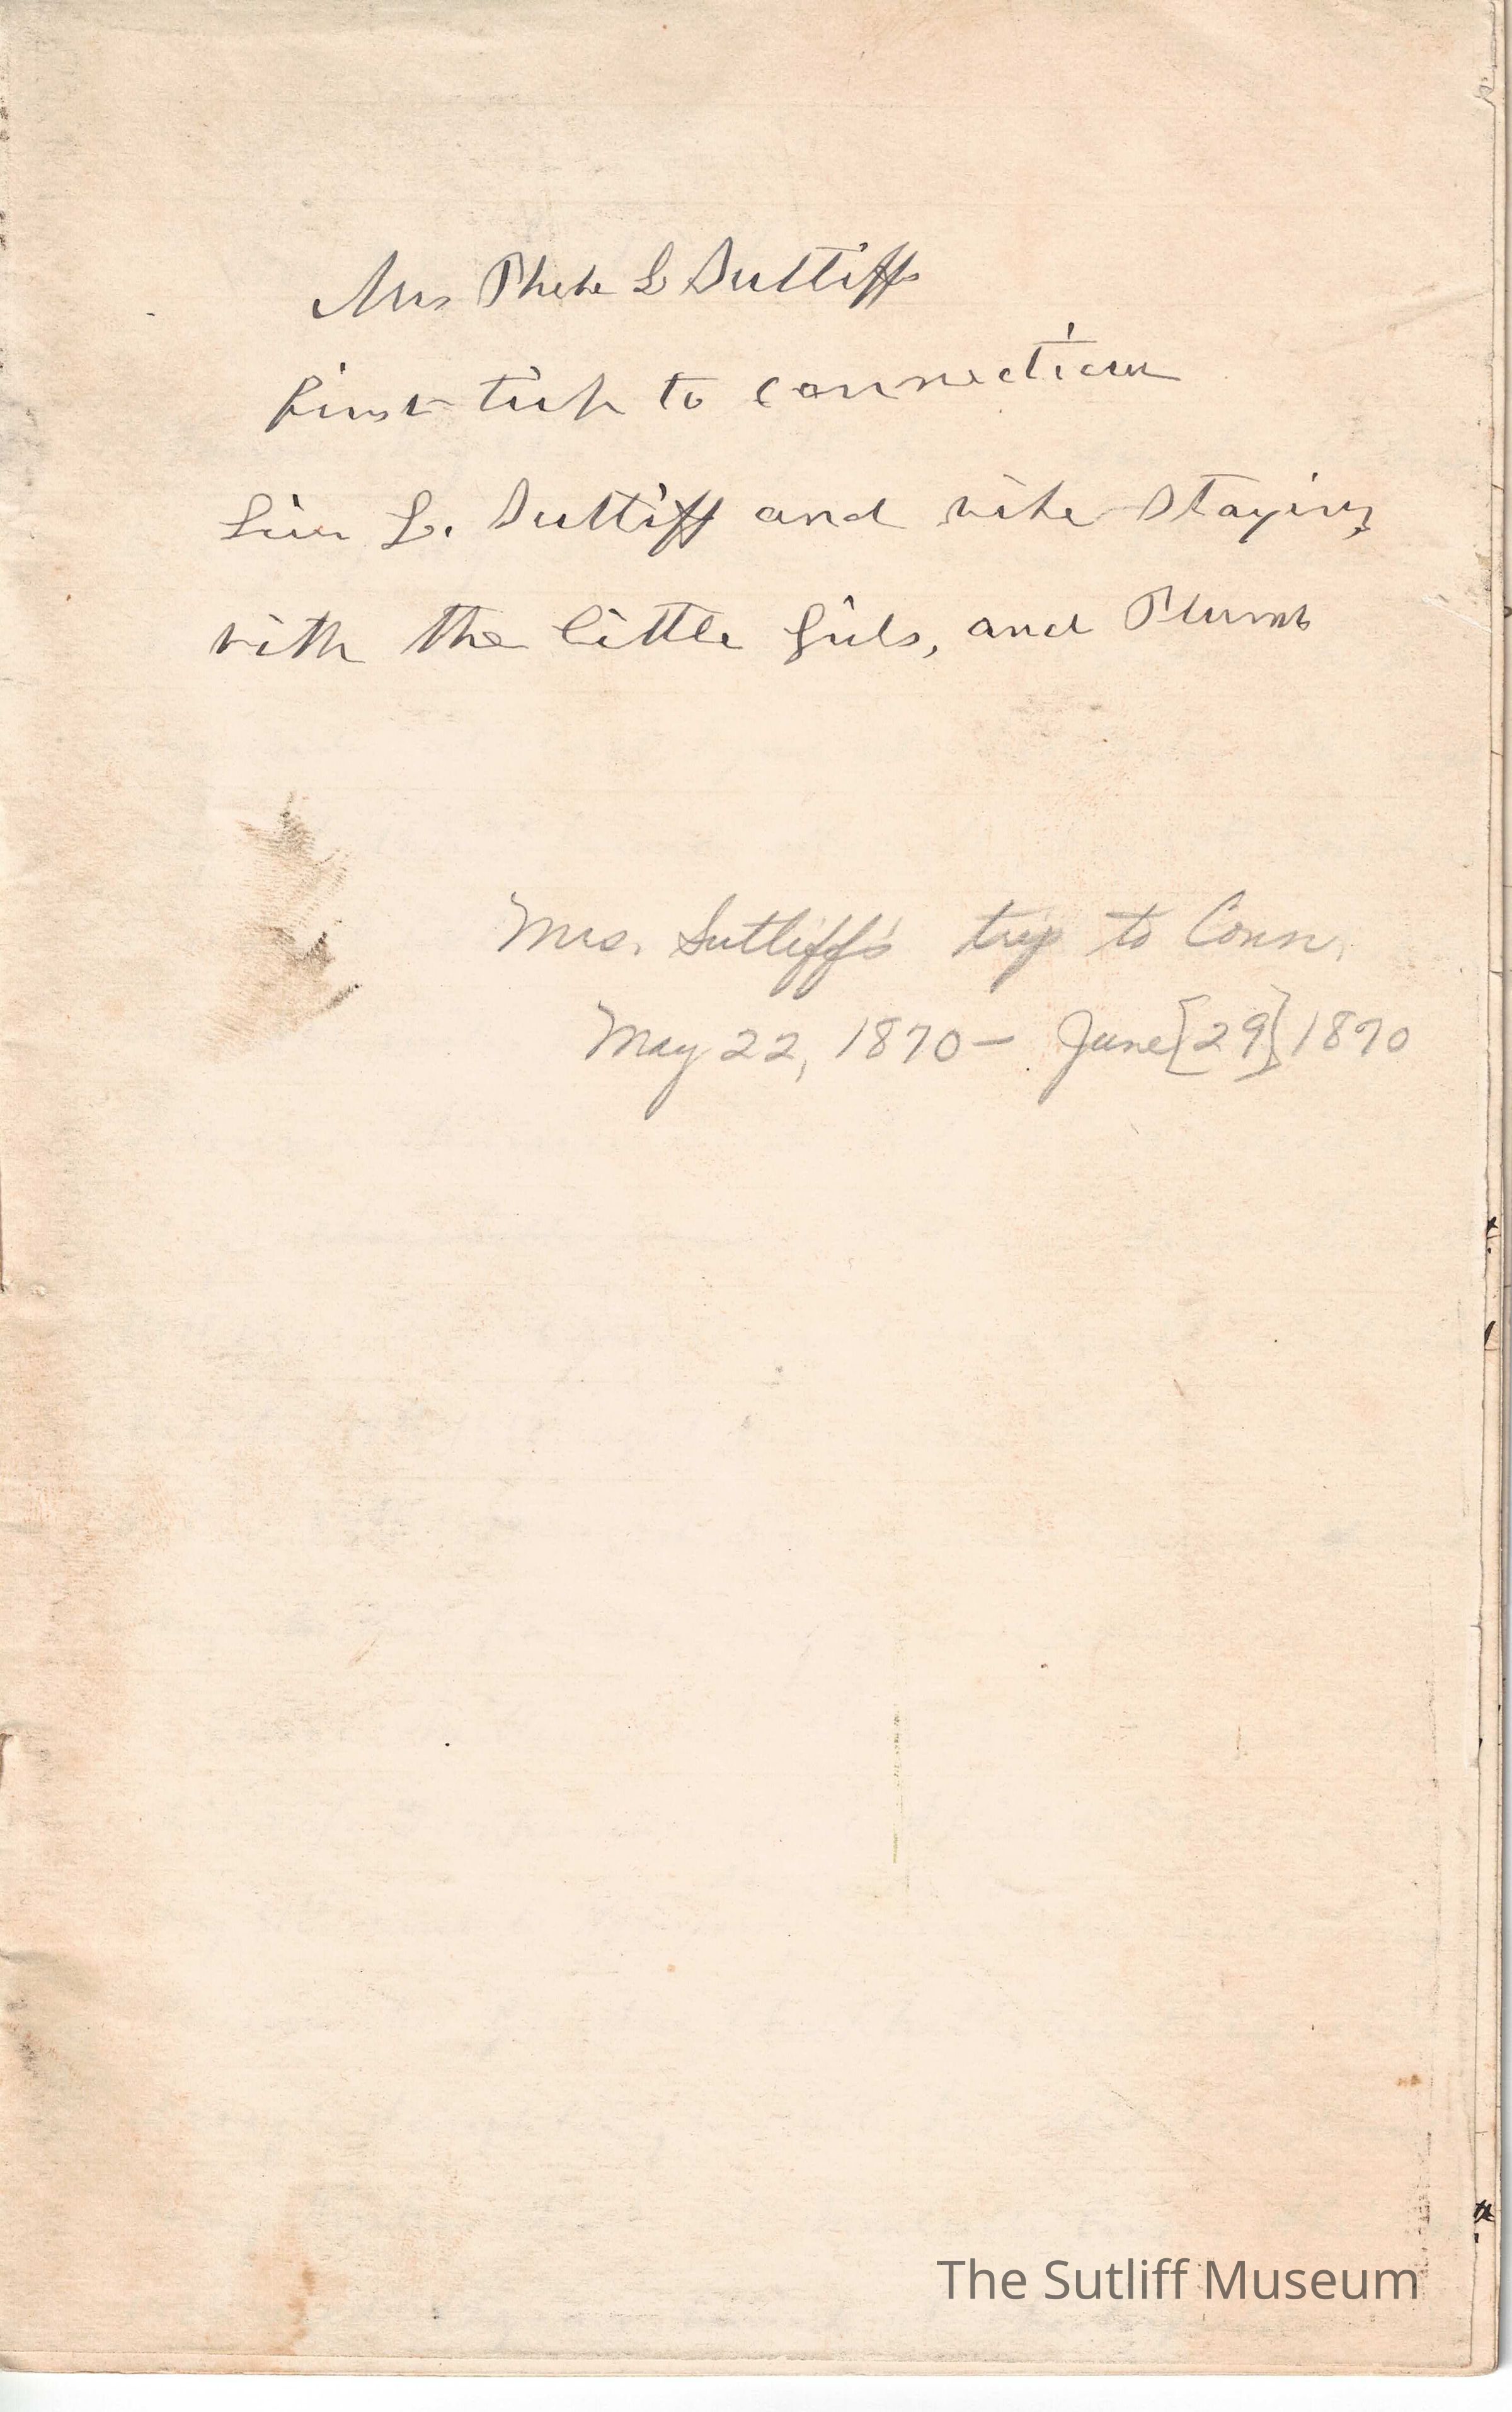 Mrs Phebe L Sutliff
first trip to connecticut
L. Sutliff and wife staying
with the little girls, and Plumb
Mrs. Sutliff's trip to Conn.
May 22, 1870 - June [29] 1870
The Sutliff Museum